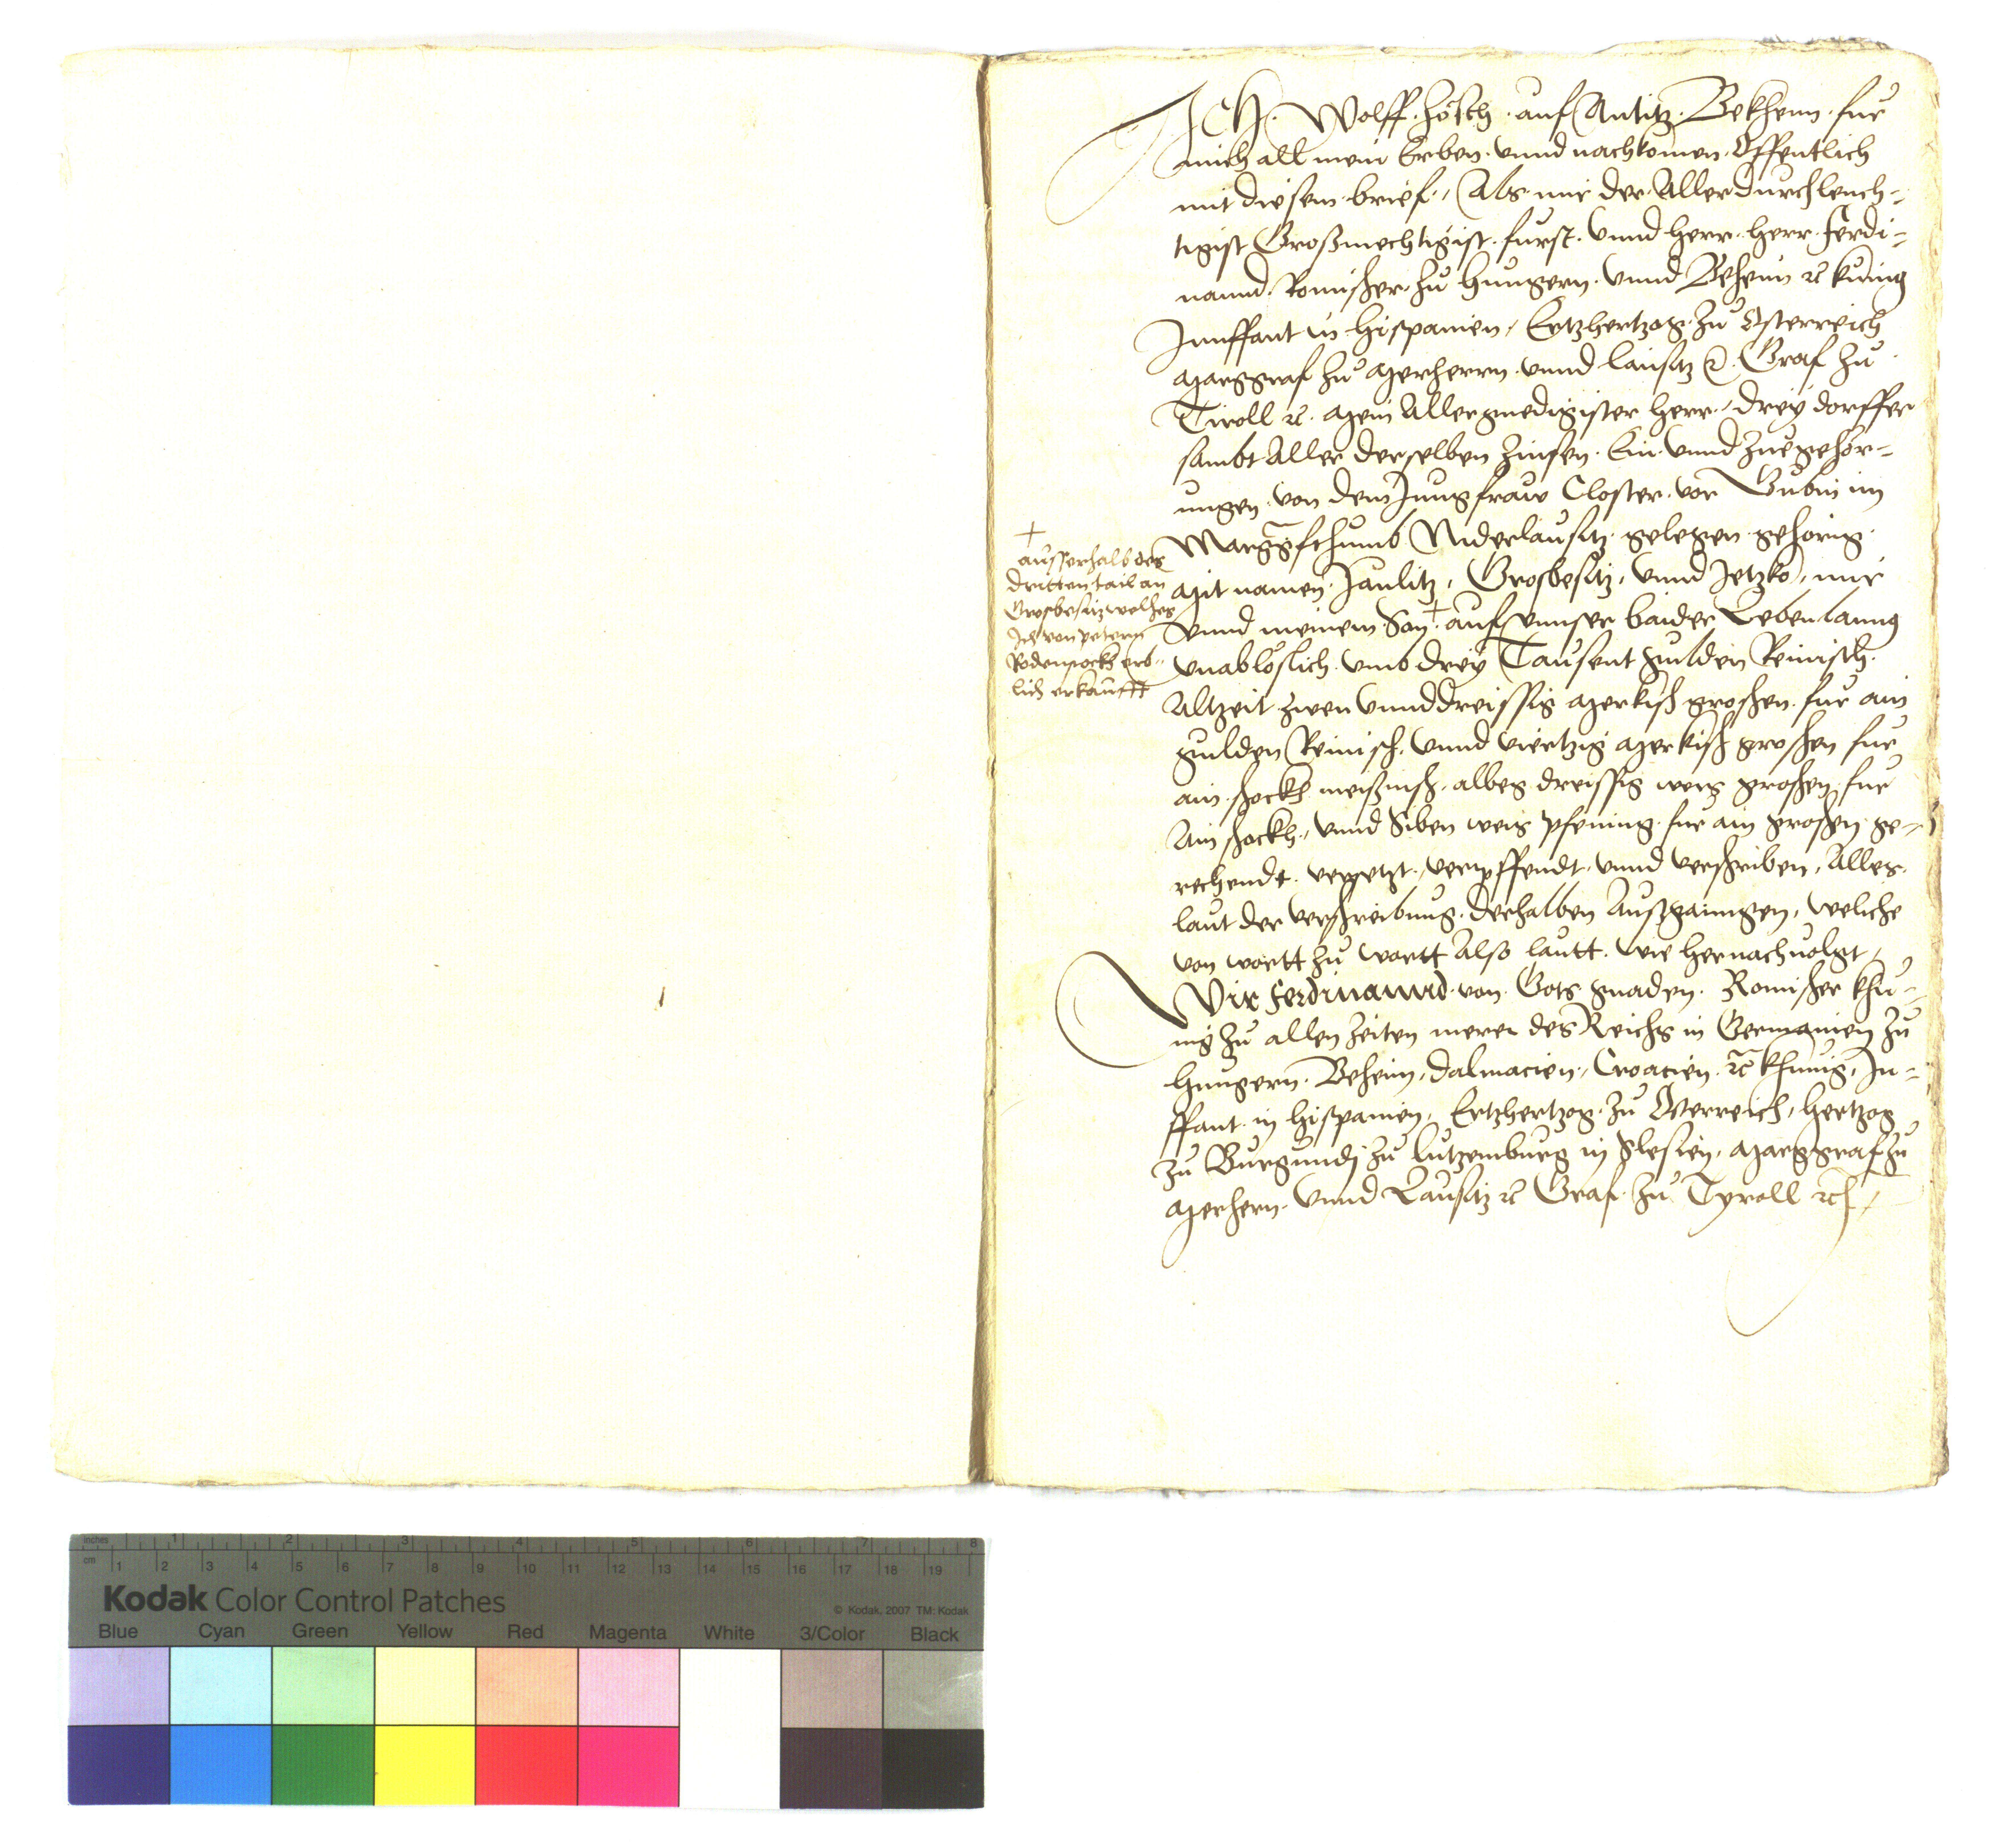 Ich Wolff Zösch auf Antitz Bekhenn fur
mich all mein Erben vnnd nachkomen Offentlich
mit diesem brief, Als mir der Allerdurchleuch-
tigist Großmechtigist furst vnnd herr herr Ferdi-
nannd Romischer zu Hungern vnnd Beheim ꝛc kunig
Innffant in hispanien, Ertzhertzog zu Osterreich
Marggraf zu Merherrn vnnd lausitz ꝛc Graf zu
Tiroll ꝛc. Mein Allergnedigister herr, drey dorffer
sambt Aller derselben Zinsen Ein vnnd zuegehor-
ungen von dem Jungfraw Closter vor Gubin im
Marggfthumb Niderlausitz gelegen gehorig
Mit namen Jaulitz, Grosbesitz, vnnd Jetzko, mir
+
ausserhalb des
dritten tail an
Grosbesitz welhes
Ich von petern
Rodenstockh erb-
lich erkaufft
vnnd meinem Son + auf vnnser baider Leben lanng
vnabloslich vmb drey Tausent gulden Reinisch
Altzeit zwen vnnd dreissig Merkisch groschen fur ain
gulden Reinisch, vnnd viertzig Merkisch groschen fur
ain schockh meißnisch, albeg dreissig weis groschen fur
Ain schockh, vnnd Siben weis pfening fur ain groschen ge-
rechendt versetzt, verpffendt vnnd verschriben, Alles
laut der verschreibung derhalben Außganngen, weliche
von wortt zu wortt Also lautt wie hernachuolgt,
Wir Ferdinannd von Gots gnaden Romischer khu-
nig zu allen Zeiten merer des Reichs in Germanien zu
Hungern Beheim, Dalmacien, Croacien ꝛc khunig, In-
ffant in hispanien, Ertzhertzog zu Osterreich, Hertzog
zu Burgundj zu lutzemburg in Slesien, Marggraf zu
Merhern vnnd Lausitz ꝛc Graf zu Tyroll ꝛc,
inches 1 2 3 4 5 6 7 8
cm 1 2 3 4 5 6 7 8 9 10 11 12 13 14 15 16 17 18 19
Kodak Color Control Patches
© Kodak, 2007 TM: Kodak
Blue Cyan Green Yellow Red Magenta White 3/Color Black